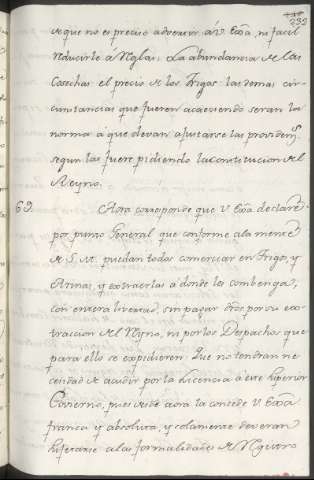 232
e que no es preciso advertir á V. Exã, ni facil
reducirle á reglas. La abundancia de las
Cosechas: el precio de los Trigos: las demas cir-
cunstancias que fueren acaeciendo seran la
norma á que devan ajustarse las providens
segun las fuere pidiendo la constitucion del
Reyno.
69. Aora corresponde que V. Exã declare
por punto General que conforme a la mente
de S. M. puedan todos comerciar en Trigo, y
Arinas, y extraerlas a donde les combenga,
con entera livertad, sin pagar dros por su ex-
traccion del Reyno, ni por los Despachos que
para ello se expidieren: Que no tendran ne
cesidad de acudir por la licencia á este Superior
Govierno, pues desde aora la concede V. Exã
franca y absoluta, y solamente deveran
sujetarse a las formalidades de Registro